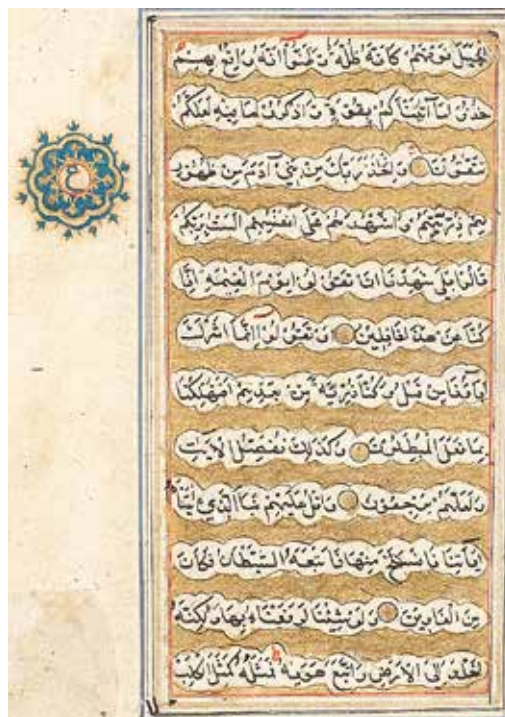 ح
الجبل فوقهم كانه ظلة وظنوا انه واقع بهم
خذوا ما آتيناكم بقوة واذكروا ما فيه لعلكم
تتقون واذ اخذ ربك من بني آدم من ظهور
هم ذريتهم واشهدهم على انفسهم الست بربكم
قالوا بلى شهدنا ان تقولوا يوم القيمة انا
كنا عن هذا غافلين او تقولوا انما اشرك
آباؤنا من قبل وكنا ذرية من بعدهم افتهلكنا
بما فعل المبطلون وكذلك نفصل الايات
ولعلهم يرجعون واتل عليهم نبا الذي آتينا
آياتنا فانسلخ منها فاتبعه الشيطان فكان
من الغاوين ولو شئنا لرفعناه بها ولكنه
اخلد الى الارض واتبع هويه فمثله كمثل الكلب